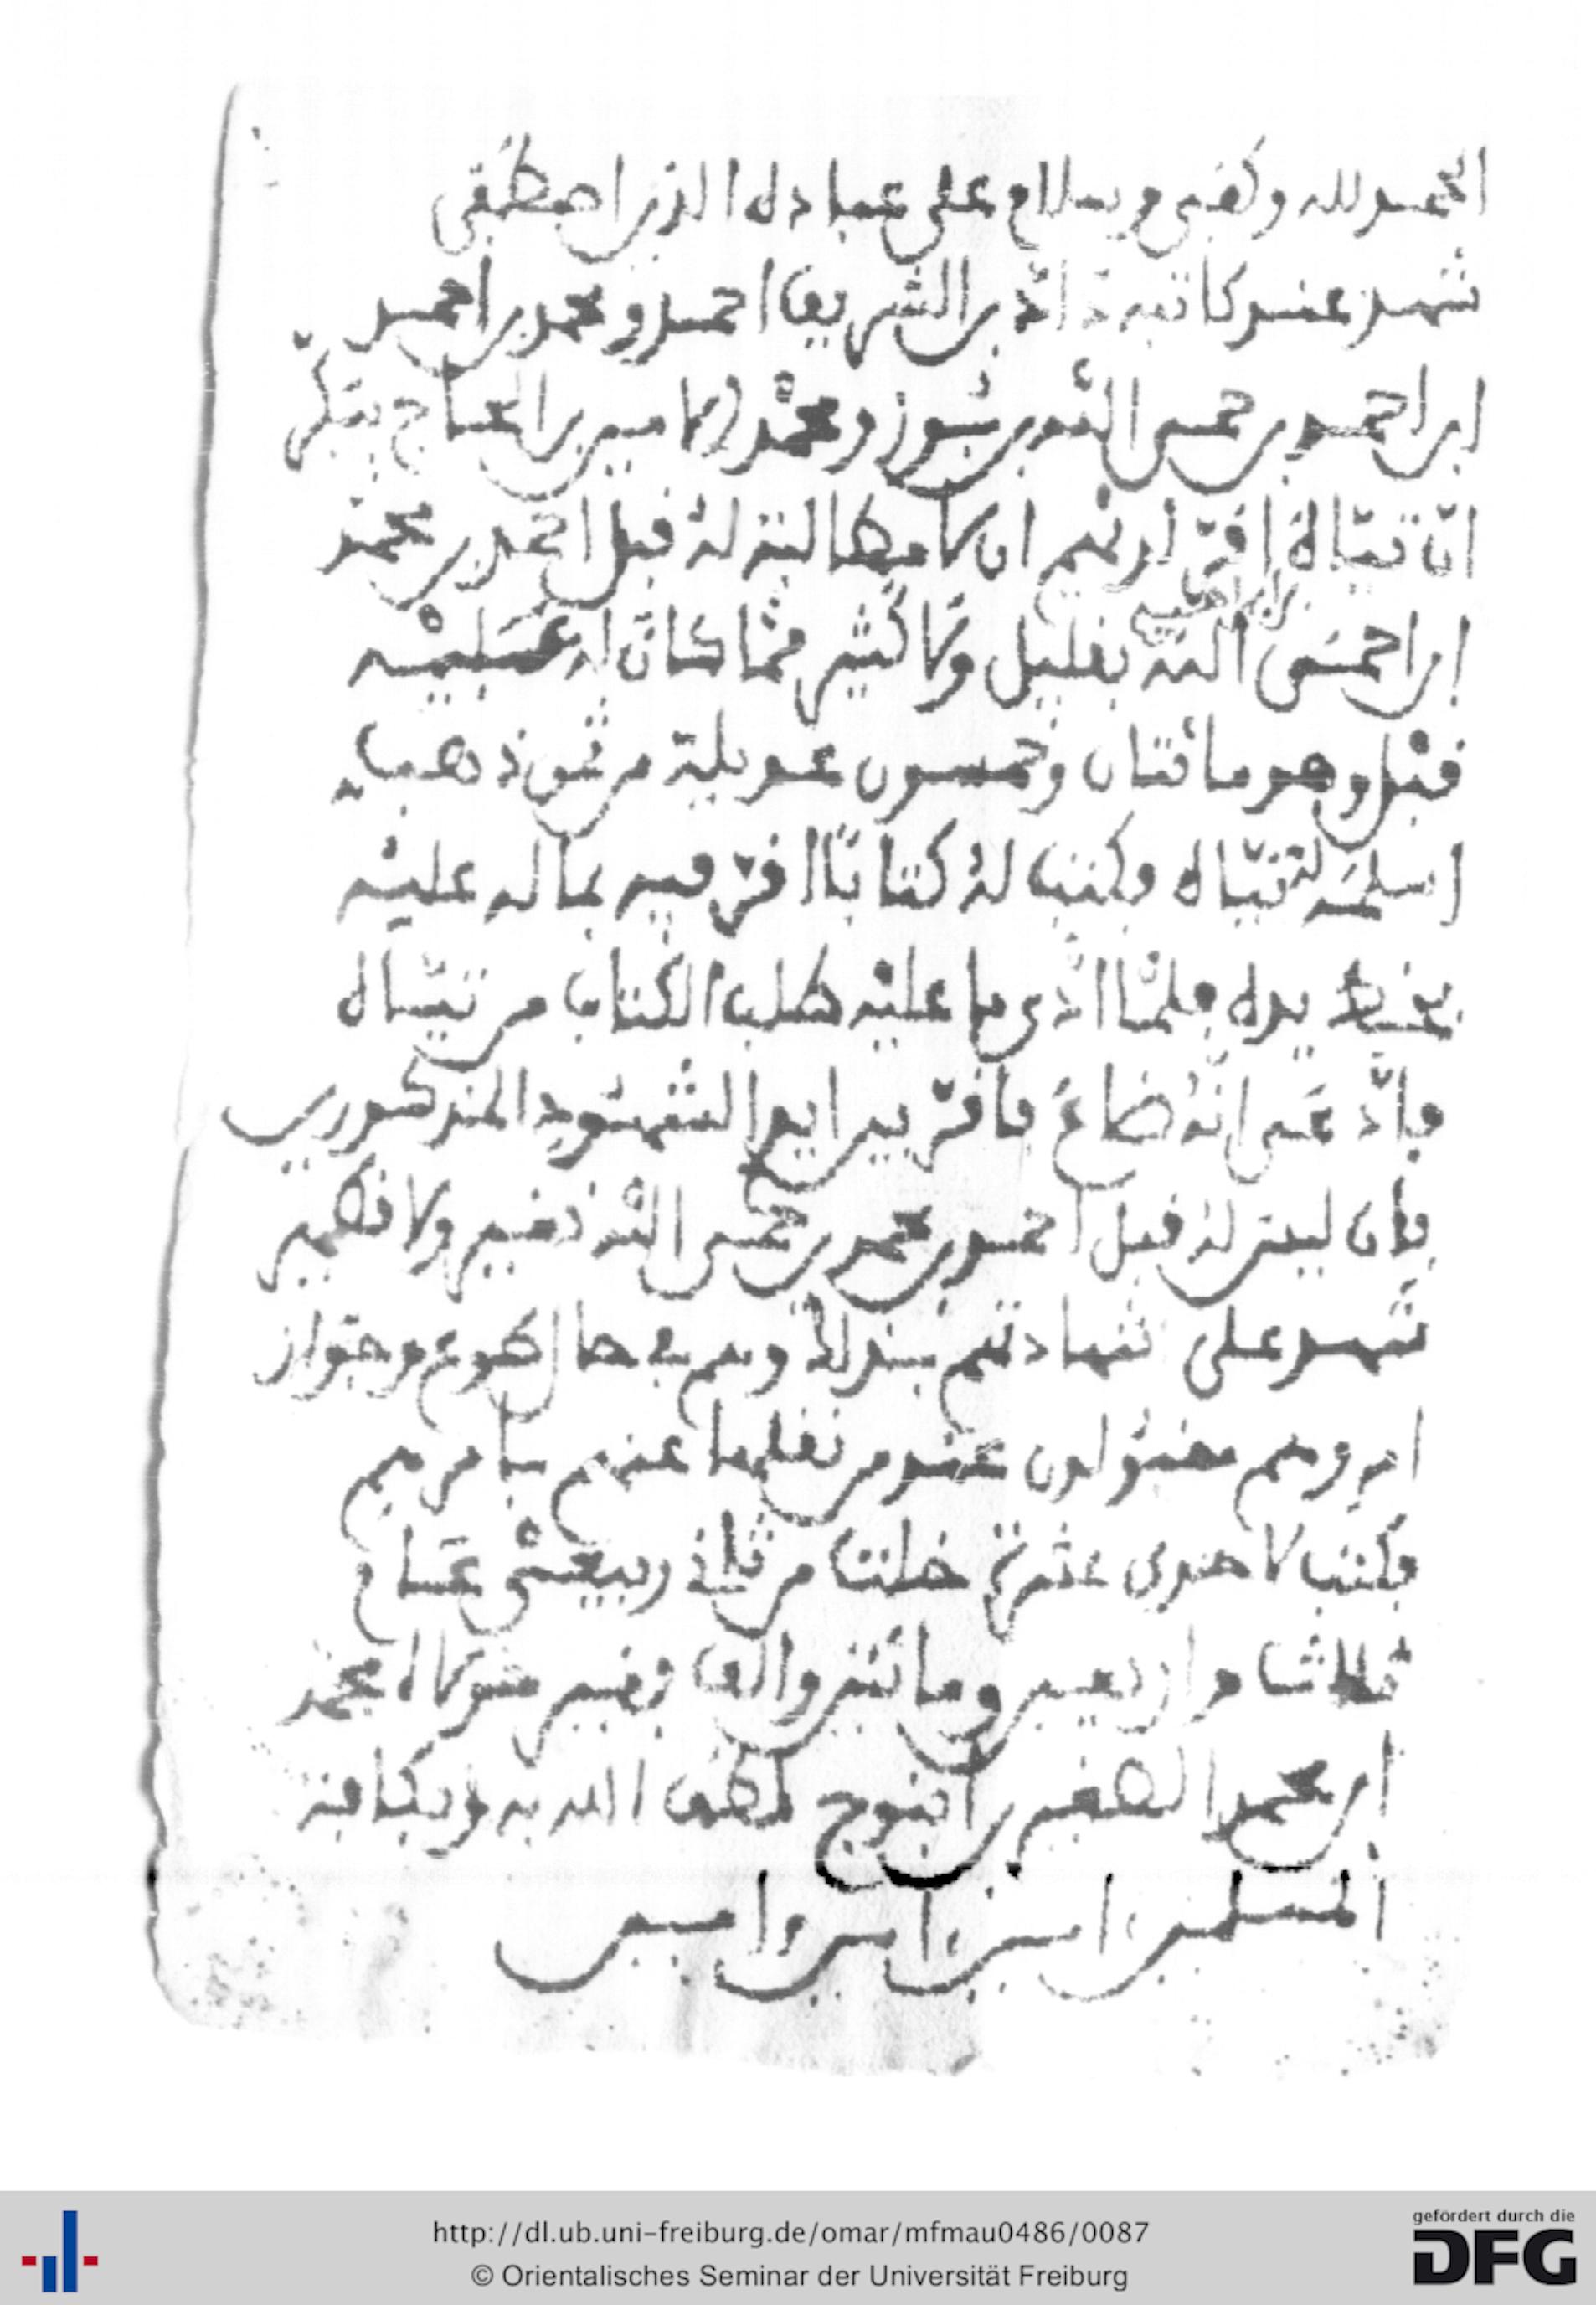 الحمد لله وكفى وسلام على عباده الذين اصطفى
شهد عند كاتبه دادّ بن الشريف احمد ومحمد بن احمد
ابن احمد بن حمى الله بن شور ومحمد الامين بن الحاج
انّ تيّاه اقرّ لديهم ان لا مطالبة له قبل احمد بن محمد
ابن احمى الله بقليل ولا كثير ممّا كان له عليه
قبل وهو مائتان وخمسون عديلة من ذهب
اسلمه له تيّاه وكتب له كتابا اقرّ فيه بما له عليه
بخط يده فلمّا ادّى ما عليه طلب الكتاب من تيّاه
فادّعى انه ضاع فاقرّ بين ايدى الشهود المذكورين
بان ليس له قبل احمد بن محمد بن حمى الله نقير ولا قطمير
شهد على شهادتهم بذلك وهم في حال طوع وجواز
امر وهم مقبولون عند من نقلها عنهم بامرهم
وكتب لاحدى عشرة خلت من ثاني ربيعى عام
ثلاثة واربعين ومائتين والف فقير مولاه محمد
ابن محمد الصغير بن انبوج لطف الله به وبكافة
المسلمين امين امين وامين
http://dl.ub.uni-freiburg.de/omar/mfmau0486/0087
© Orientalisches Seminar der Universität Freiburg
gefördert durch die
DFG